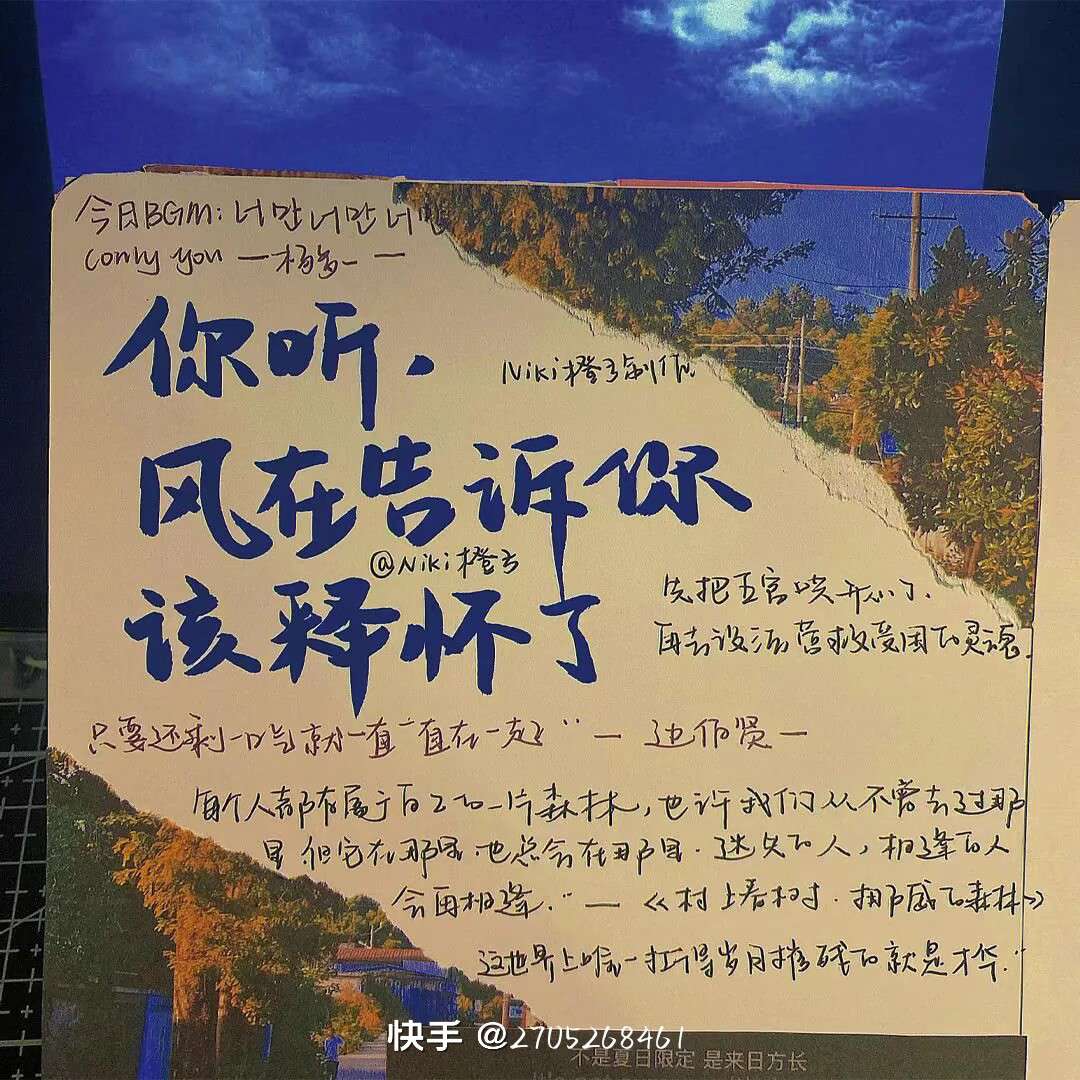 今日BGM:너만너만너만
(only you —杨多一—
你听,
Niki橙子制作
风在告诉你
@Niki橙子
该释怀了
先把五官哄开心了,
再去设法营救受困的灵魂.
只要还剩一口气就一直一直在一起" — 边伯贤—
每个人都有属于自己的一片森林,也许我们从不曾去过那
里 但它在那里.也总会在那里.迷失的人,相逢的人
会再相逢."—《村上春树.挪威的森林》
这世界上唯一扛得岁月摧残的就是才华."
快手 @2705268461
不是夏日限定 是来日方长